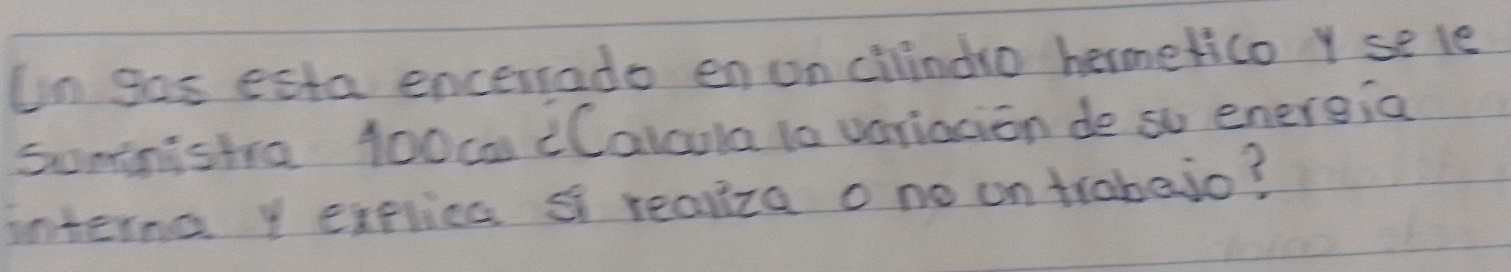 Un gas esta encerrado en un cilindro hermetico y se le
suministra 100 cal ¿Calcula la variación de su energia
interna y explica si realiza o no un trabajo?